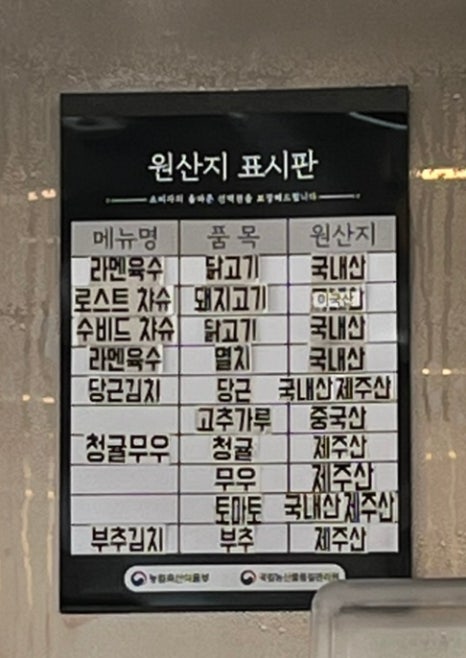 원산지 표시판
소비자의 올바른 선택권을 보장해드립니다
메뉴명 품 목 원산지
라멘육수 닭고기 국내산
로스트 챠슈 돼지고기 미국산
수비드 챠슈 닭고기 국내산
라멘육수 멸치 국내산
당근김치 당근 국내산 제주산
고추가루 중국산
청귤무우 청귤 제주산
무우 제주산
토마토 국내산 제주산
부추김치 부추 제주산
농림축산식품부 국립농산물품질관리원